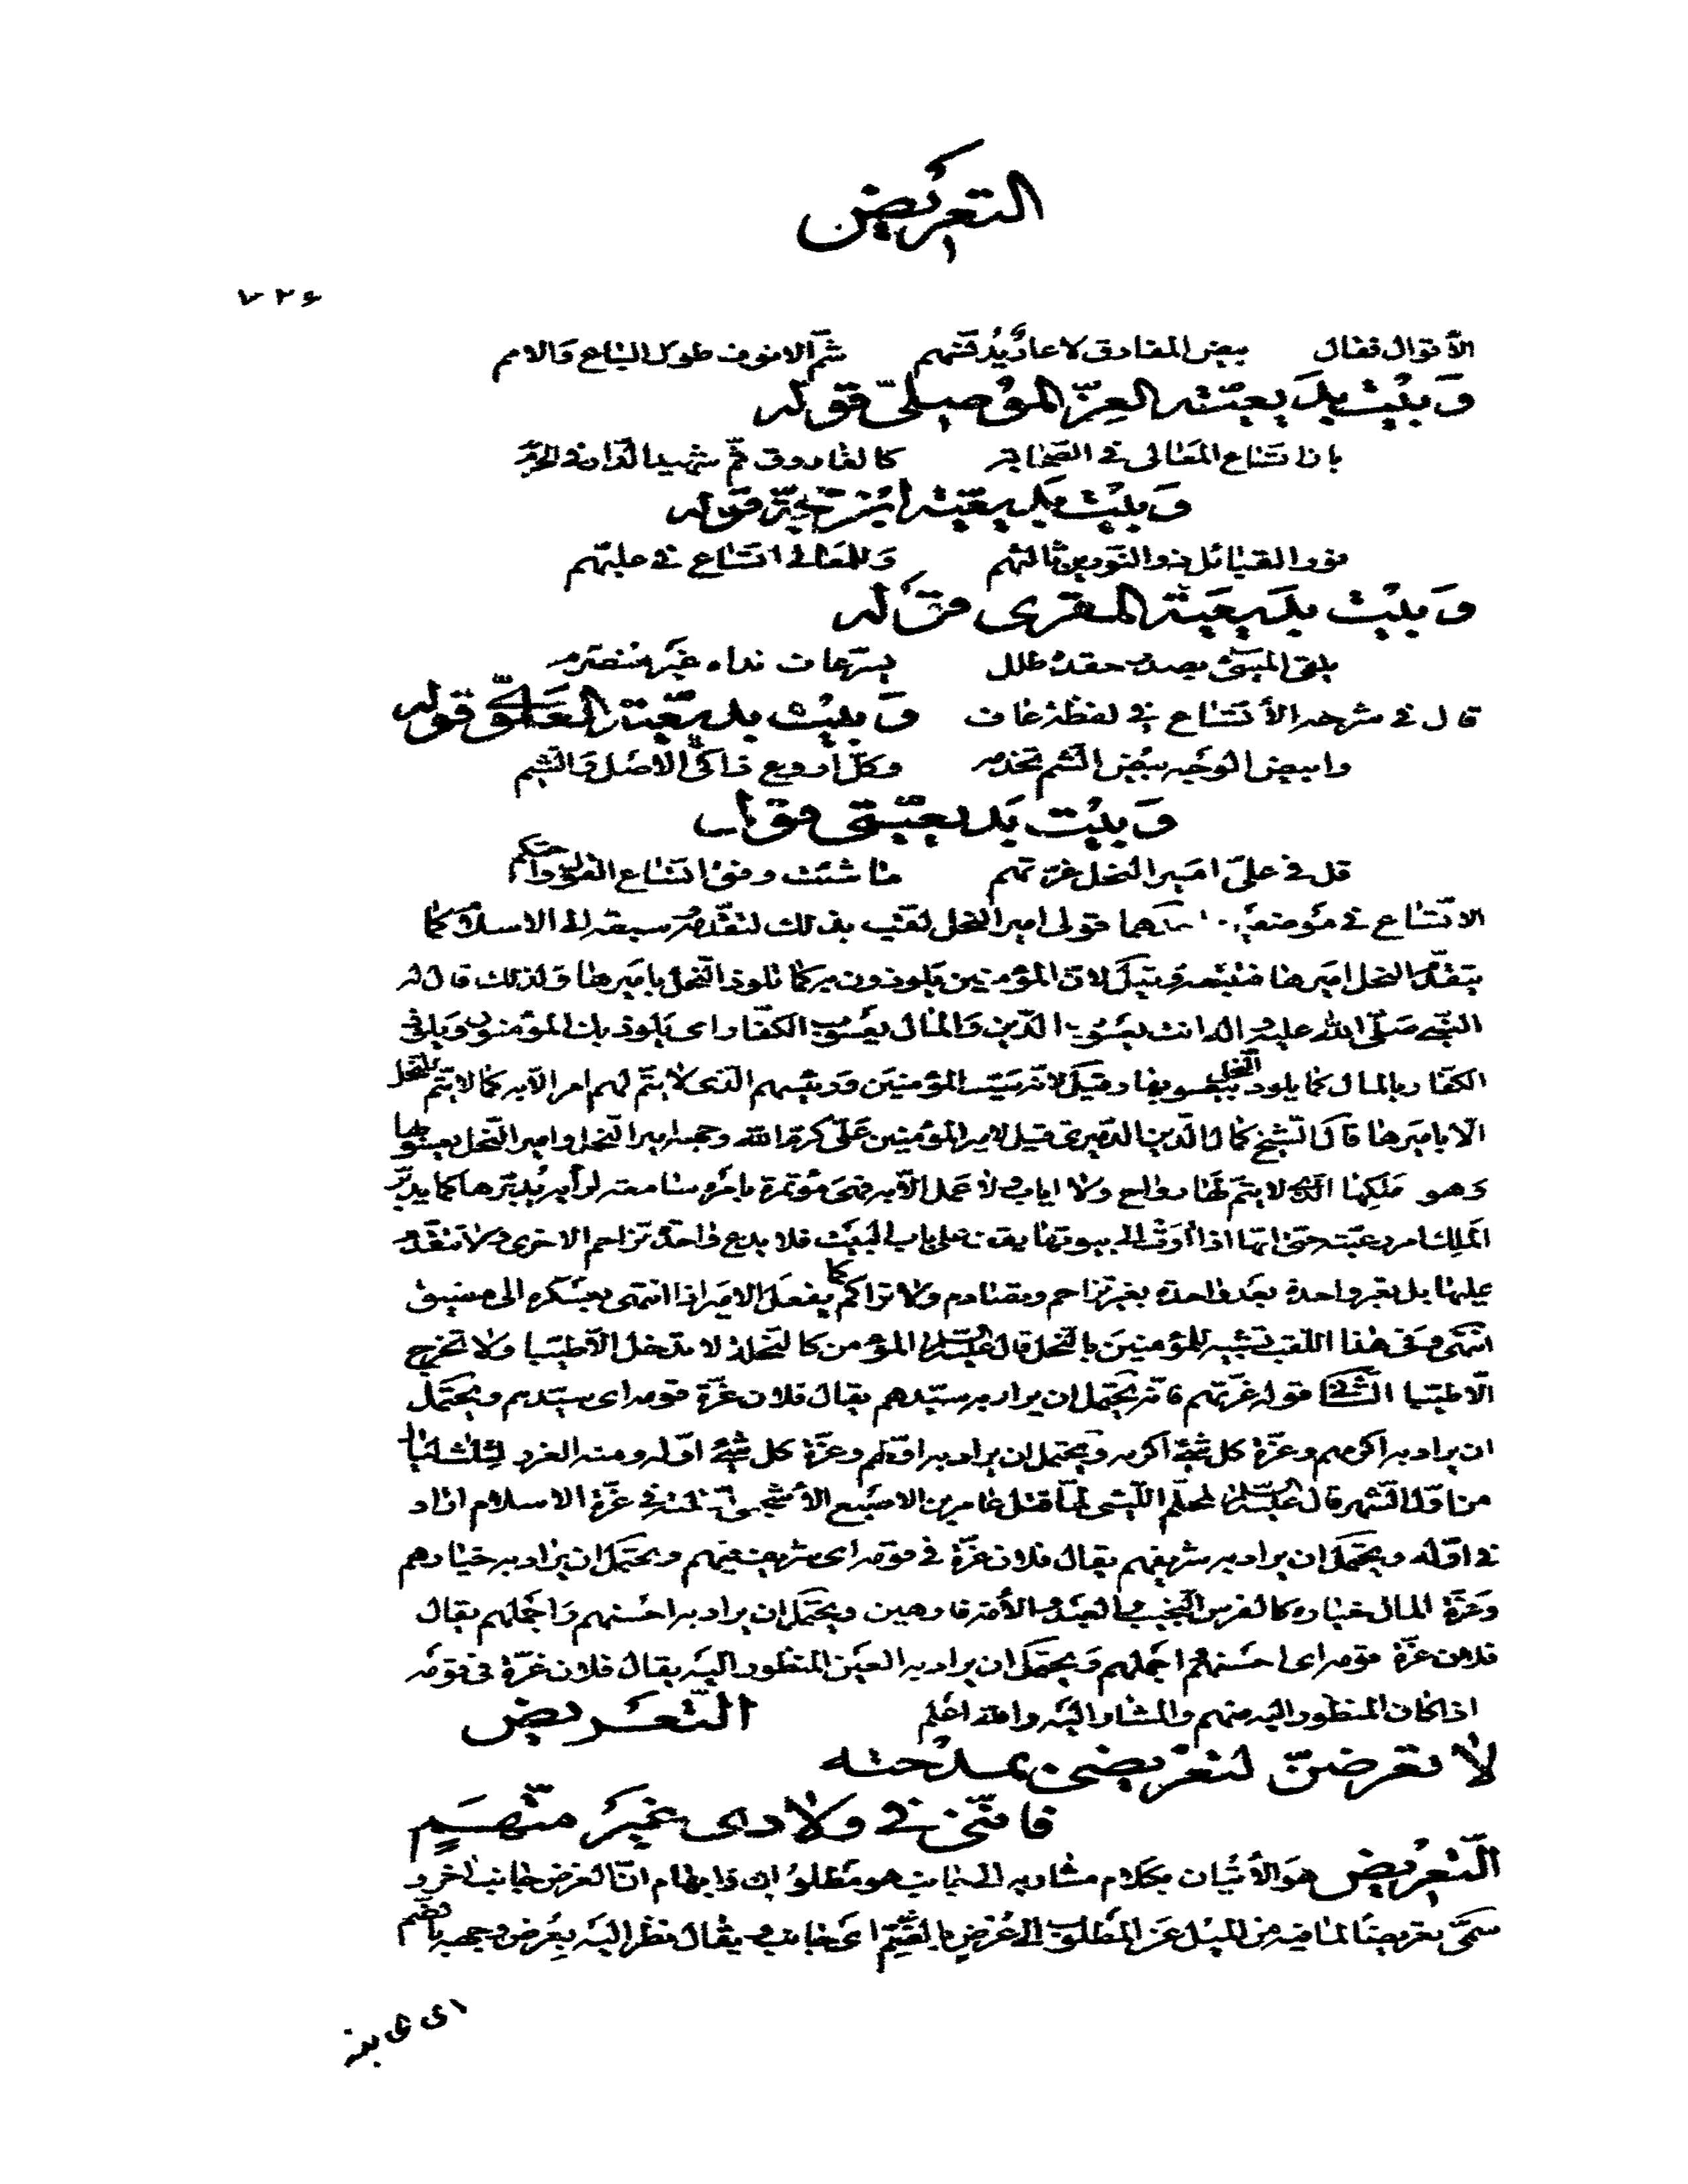 التعريض
٧٢٦
الأقوال فقال بيض المفارق لا عار يدنسهم شم الانوف طوال الباع والامم
وبيت بديعية العز الموصلي قوله
بان اتساع المعالى في الصحابة كالفاروق ثم شهيد الدار في الحرم
وبيت بديعية ابن حجة قوله
نور القبائل ذو النورين ثالثهم وللمعالي اتساع في عليهم
وبيت بديعية المقرى قوله
قال في شرحه الأتساع في لفظة عاف وبيت بديعية العلوى قوله
وابيض الوجه بيض الشم تخدمه وكل أروع زاكي الاصل والشيم
وبيت بديعيتي قولي
قل في علي امير النحل غرتهم ما شئت وفق اتساع القول واحتكم
الاتساع في موضعين احدهما قولى امير النحل لقب بذلك لتقدمه وسبقه الى الاسلام كما
يتقدم النحل اميرها فتتبعه وقيل لان المؤمنين يلوذون به كما تلوذ النحل باميرها ولذلك قال له
النبي صلى الله عليه واله انت يعسوب الدين والمال يعسوب الكفار اى يلوذ بك المؤمنون ويلوذ
الكفار بالمال كما يلوذ النحل بيعسوبها وقيل لانه سيد المؤمنين ورئيسهم الذى لا يتم لهم امر الا به كما لا يتم للنحل
الا باميرها قال الشيخ كمال الدين الدميرى قيل لامير المؤمنين على كرم الله وجهه امير النحل وامير النحل يعسوبها
وهو ملكها الذى لا يتم لها رواح ولا اياب ولا عمل الا به فهى مؤتمرة بامره سامعة له يدبرها كما يدبر
الملك امر رعيته حتى انها اذا أوت الى بيوتها يقف على باب البيت فلا يدع واحدة تزاحم الاخرى ولا تتقدم
عليها بل تعبر واحدة بعد واحدة بغير تزاحم وتصادم ولا تراكم كما يفعل الامير اذا انتهى بعسكره الى مضيق
انتهى وفى هذا اللقب تشبيه للمؤمنين بالنحل قال عليه السلام المؤمن كالنحلة لا تدخل الا طيبا ولا تخرج
الا طيبا الثاني قوله غرتهم فانه يحتمل ان يراد به سيدهم يقال فلان غرة قومه اى سيدهم ويحتمل
ان يراد به اكرمهم وغرة كل شيء اكرمه ويحتمل ان يراد به اولهم وغرة كل شيء اوله ومنه الغرر لثلث ليال
من اول الشهر قال عليه السلام لمحلم الليثى لما قتل عامر بن الاضبع الأشجعى اقتلته في غرة الاسلام اراد
في اوله ويحتمل ان يراد به شريفهم يقال فلان غرة في قومه اى شريف فيهم ويحتمل ان يراد به خيارهم
وغرة المال خياره كالفرس النجيب والعبد والأمة الفارهين ويحتمل ان يراد به احسنهم واجملهم يقال
فلان غرة قومه اى احسنهم اجملهم ويحتمل ان يراد به العين المنظور اليه يقال فلان غرة في قومه
اذا كان المنظور اليه منهم والمشار اليه والله اعلم التعريض
لا تعرضن لتعريضى بمدحته
فاننى فى ولادى غير متهم
التعريض هو الأتيان بكلام مشار به الى جانب هو مطلوبك وايهام ان الغرض جانب اخر و
سمى تعريضا لما فيه من الميل عن المطلوب الى عرض بالضم اى جانب يقال نظر اليه بعرض وجهه بالضم